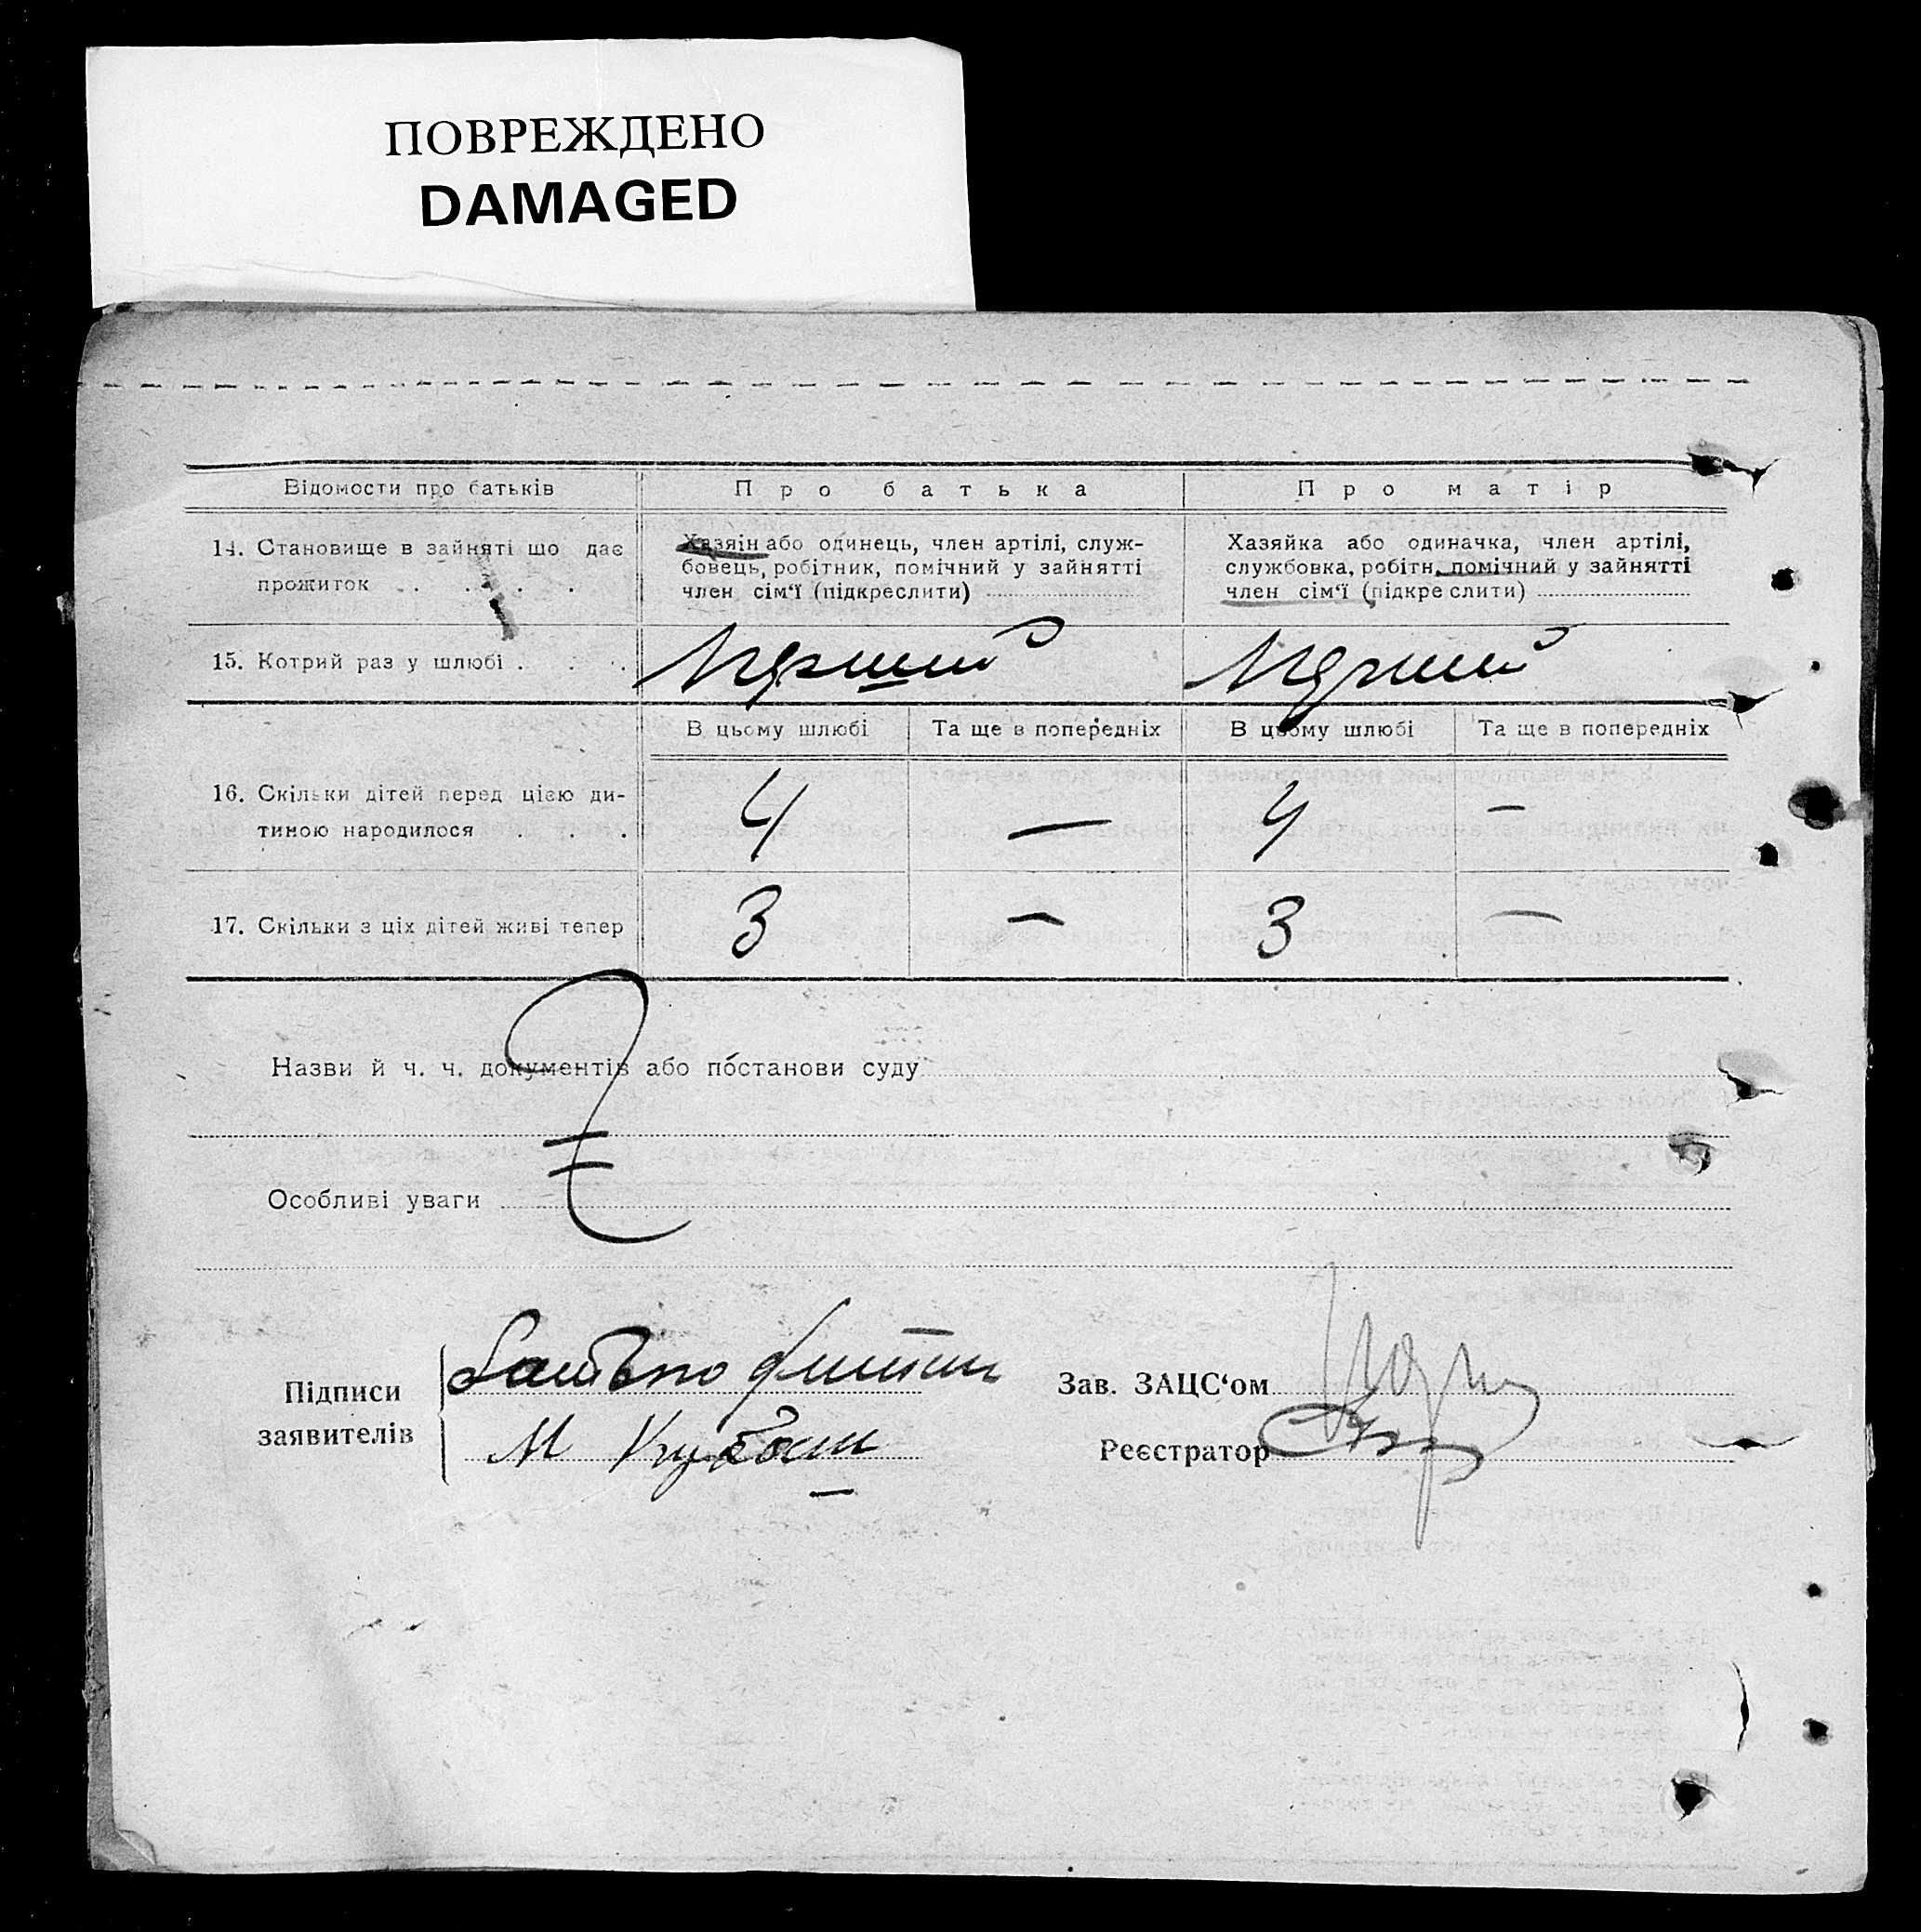 ПОВРЕЖДЕНО
DAMAGED
Відомости про батьків
Про батька
Про матір
14. Становище в зайняті що дає
прожиток . . . .
Хазяїн або одинець, член артілі, служ-
бовець, робітник, помічний у зайнятті
член сім'ї (підкреслити)
Хазяйка або одиначка, член артілі,
службовка, робітн. помічний у зайнятті
член сім'ї (підкреслити)
15. Котрий раз у шлюбі . . .
Перший
Перший
В цьому шлюбі
Та ще в попередніх
В цьому шлюбі
Та ще в попередніх
16. Скільки дітей перед цією ди-
тиною народилося . . .
4
—
4
—
17. Скільки з ціх дітей живі тепер
3
—
3
—
Назви й ч. ч. документів або постанови суду
Особливі уваги
Підписи
заявителів
М
Зав. ЗАЦС'ом
Реєстратор